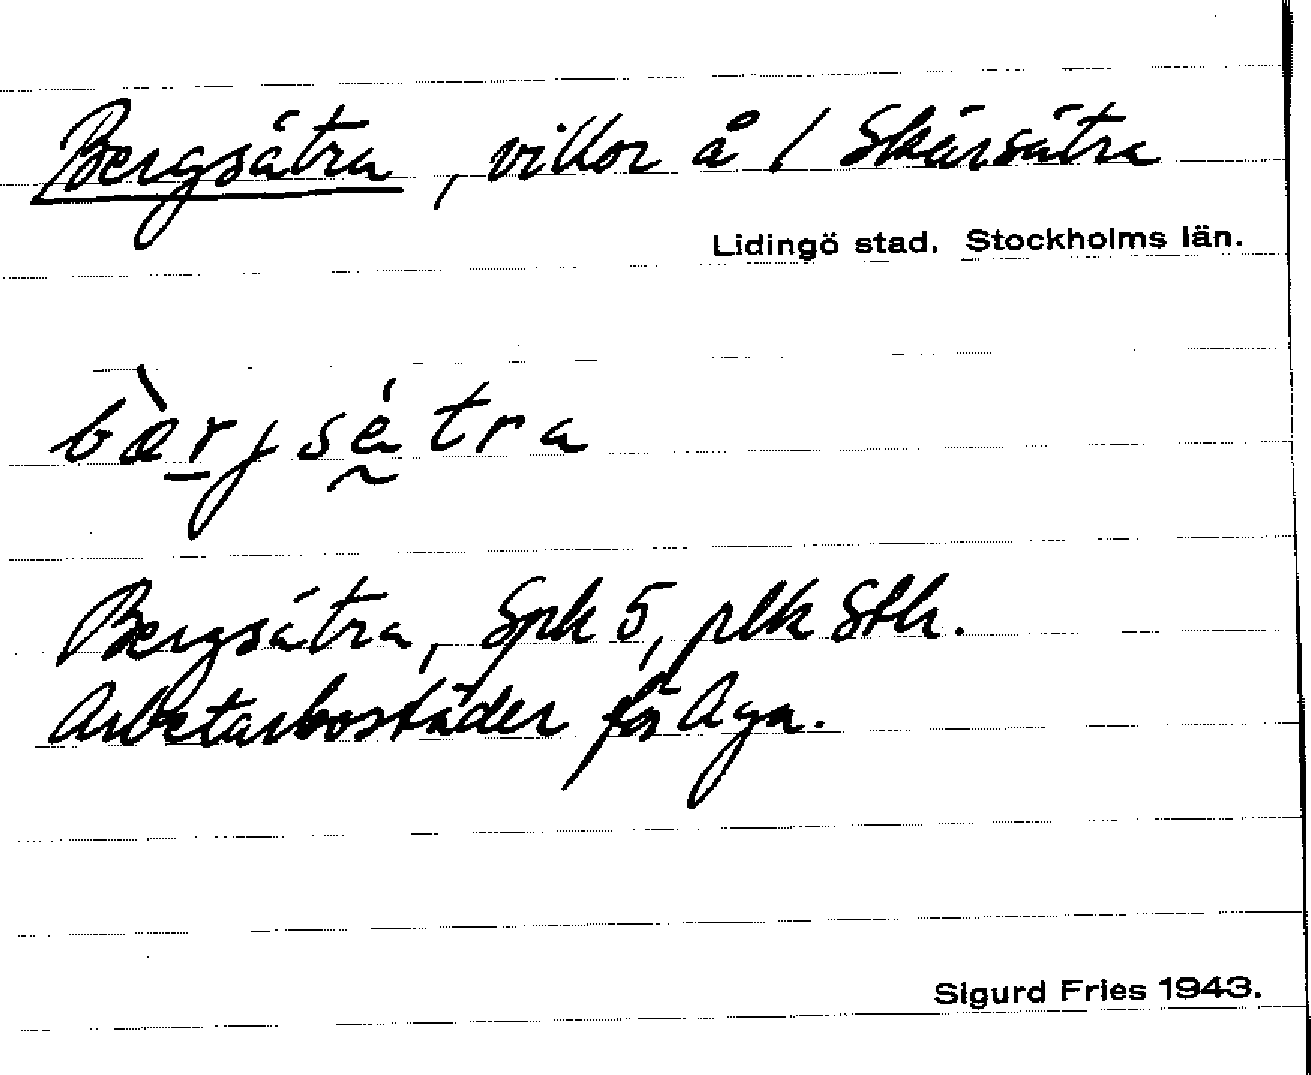 Bergsätra, villor å / Skärsätra
Lidingö stad. Stockholms län.
bæ̀rj sḛ́ tra
Bergsätra, Spk 5, plk Sthlm.
Arbetarbostäder för Aga.
Sigurd Fries 1943.